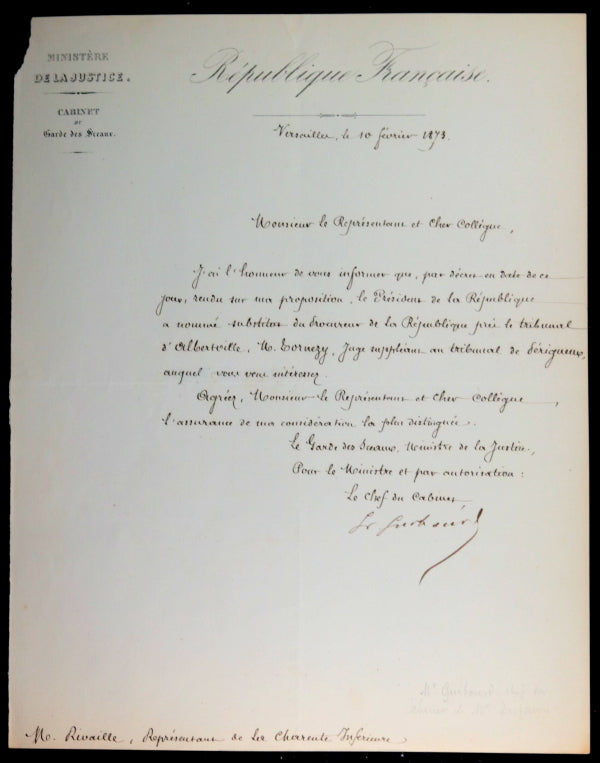 MINISTÈRE
DE LA JUSTICE.
CABINET
DU
Garde des Sceaux.
République Française.
Versailles, le 10 février 1873.
Monsieur le Représentant et Cher Collègue,
J'ai l'honneur de vous informer que, par décret en date de ce
jour, rendu sur ma proposition, le Président de la République
a nommé substitut du Procureur de la République près le tribunal
d'Albertville, M. Tornezy, Juge suppléant au tribunal de Périgueux,
auquel vous vous intéressez.
Agréez, Monsieur le Représentant et Cher Collègue,
l'assurance de ma considération la plus distinguée.
Le Garde des Sceaux, Ministre de la Justice,
Pour le Ministre et par autorisation :
Le Chef du Cabinet
Mr Guibourd chef du
M. Rivaille, Représentant de la Charente Inférieure